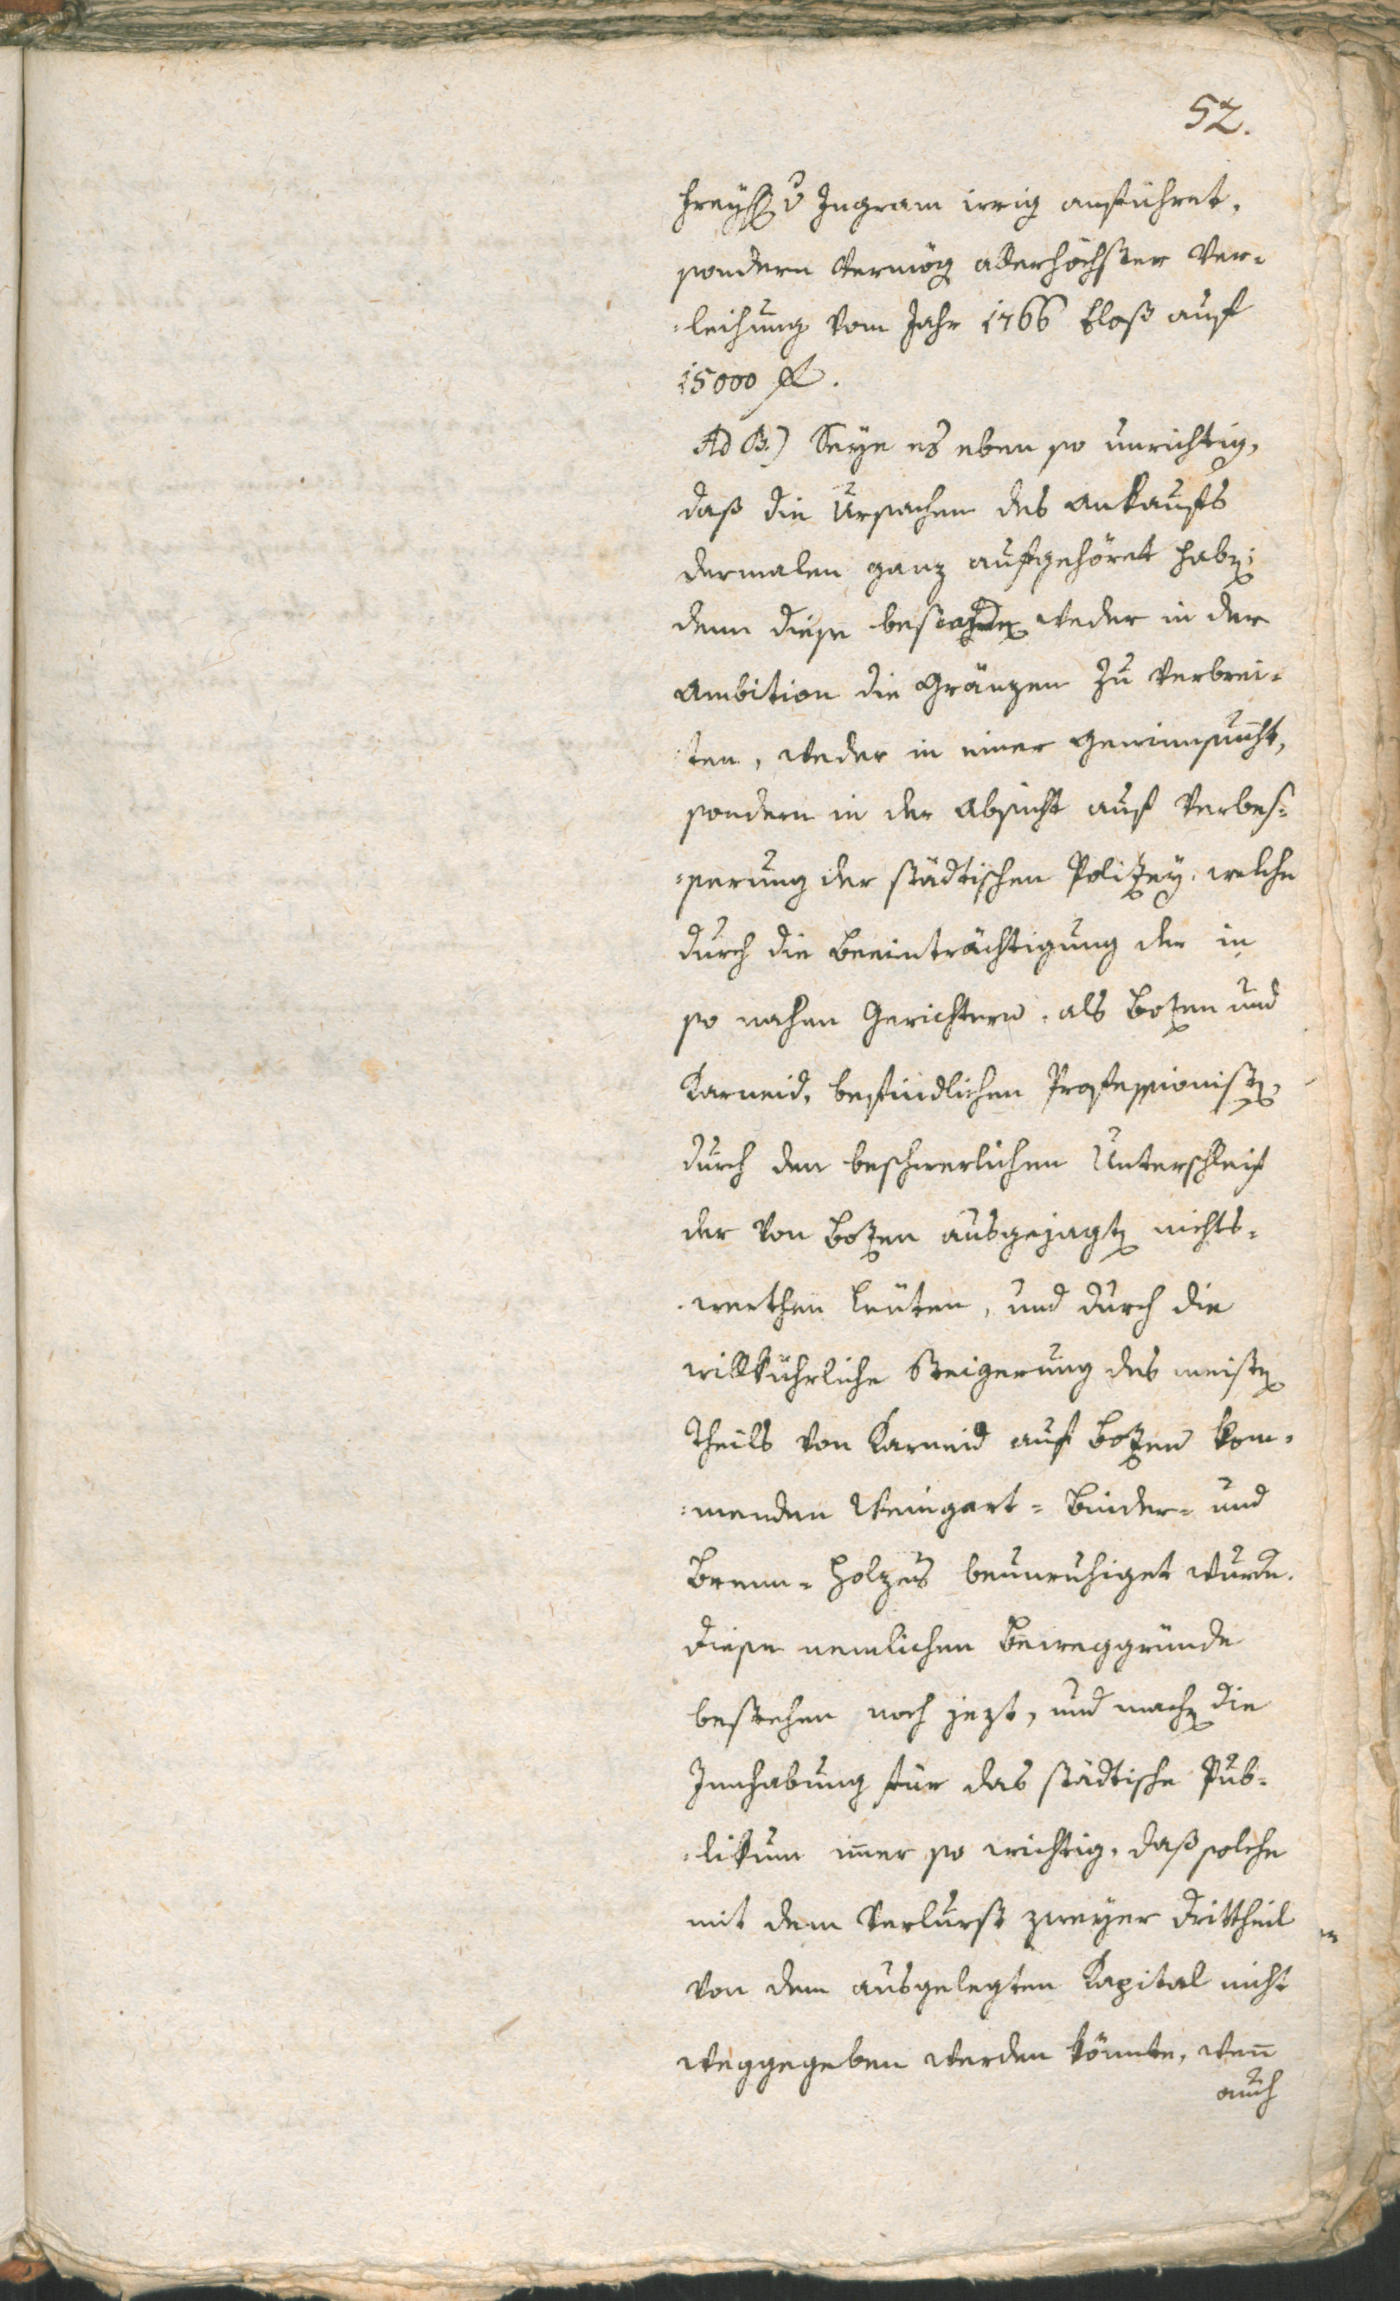 52.
Freyh v Ingram irrig anführet,
sondern vermög allerhöchster Ver-
-leihung vom Jahr 1766 bloß auf
15000 fl.
Ad B.) Seye es eben so unrichtig,
daß die Ursachen des Ankaufs
dermalen ganz aufgehöret haben;
denn diese bestanden weder in der
Ambition die Gränzen zu verbrei-
-ten, weder in einer Gewinnsucht,
sondern in der Absicht auf Verbes-
-serung der städtischen Polizey, welche
durch die Beeinträchtigung der in
so nahen Gerichtern, als Bozen und
Karneid, befindlichen Professionisten,
durch den beschwerlichen Unterschleif
der von Bozen ausgejagten nichts-
-werthen Leüten, und durch die
willkührliche Steigerung des meisten
Theils von Karneid auf Bozen kom-
-menden Weingart- Binder- und
Brenn- Holzes beunruhiget wurde.
Diese nemlichen Beweggründe
bestehen noch jezt, und machen die
Innhabung für das städtische Pub-
-likum im̄er so wichtig, daß solche
mit dem Verlurst zweyer Drittheil
von dem ausgelegten Kapital nicht
weggegeben werden könnte, wen̄
auch